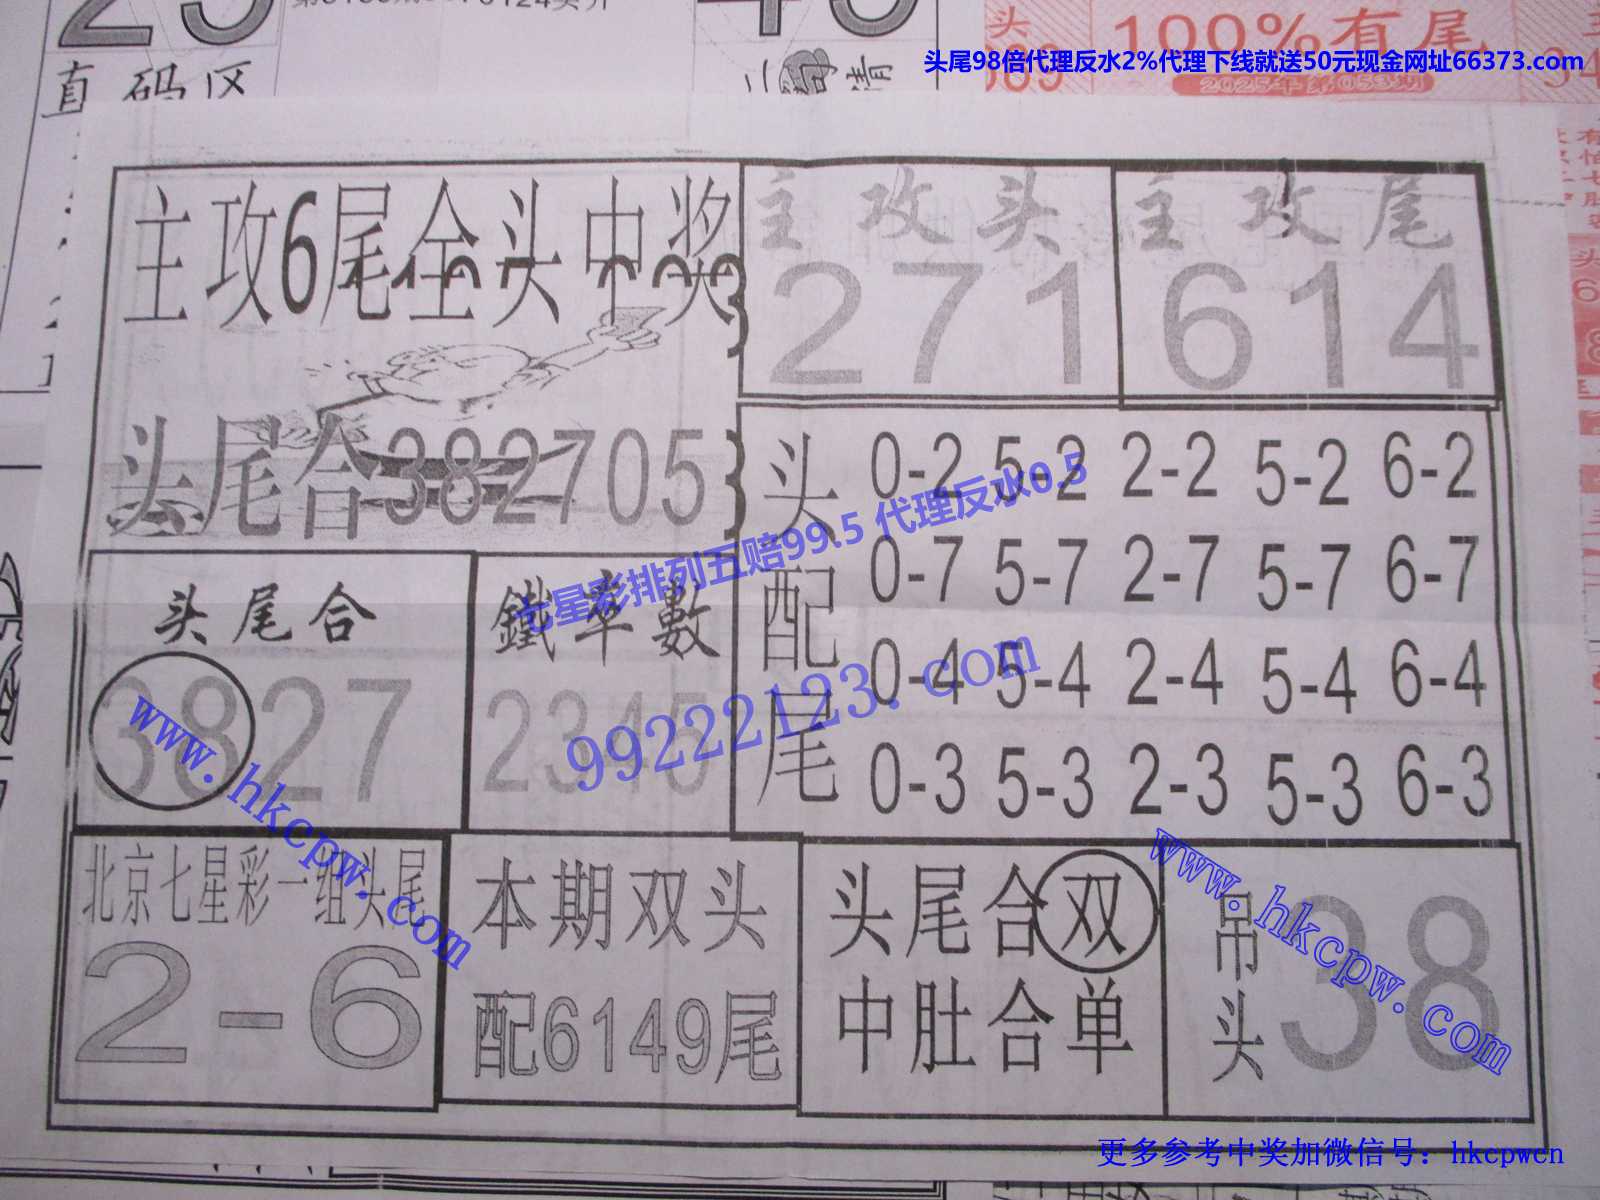 直码区
头
100%有尾
2025年第053期
头尾98倍代理反水2%代理下线就送50元现金网址66373.com
主攻6尾全头中奖
主攻头
271
主攻尾
614
头尾合382705
头配尾
0-2 5-2 2-2 5-2 6-2
0-7 5-7 2-7 5-7 6-7
0-4 5-4 2-4 5-4 6-4
0-3 5-3 2-3 5-3 6-3
七星彩排列五赔99.5 代理反水0.5
99222123.com
头尾合
3827
鐵率數
2345
www.hkcpw.com
北京七星彩一组头尾
2-6
本期双头
配6149尾
头尾合双
中肚合单
吊头
38
www.hkcpw.com
更多参考中奖加微信号：hkcpwcn